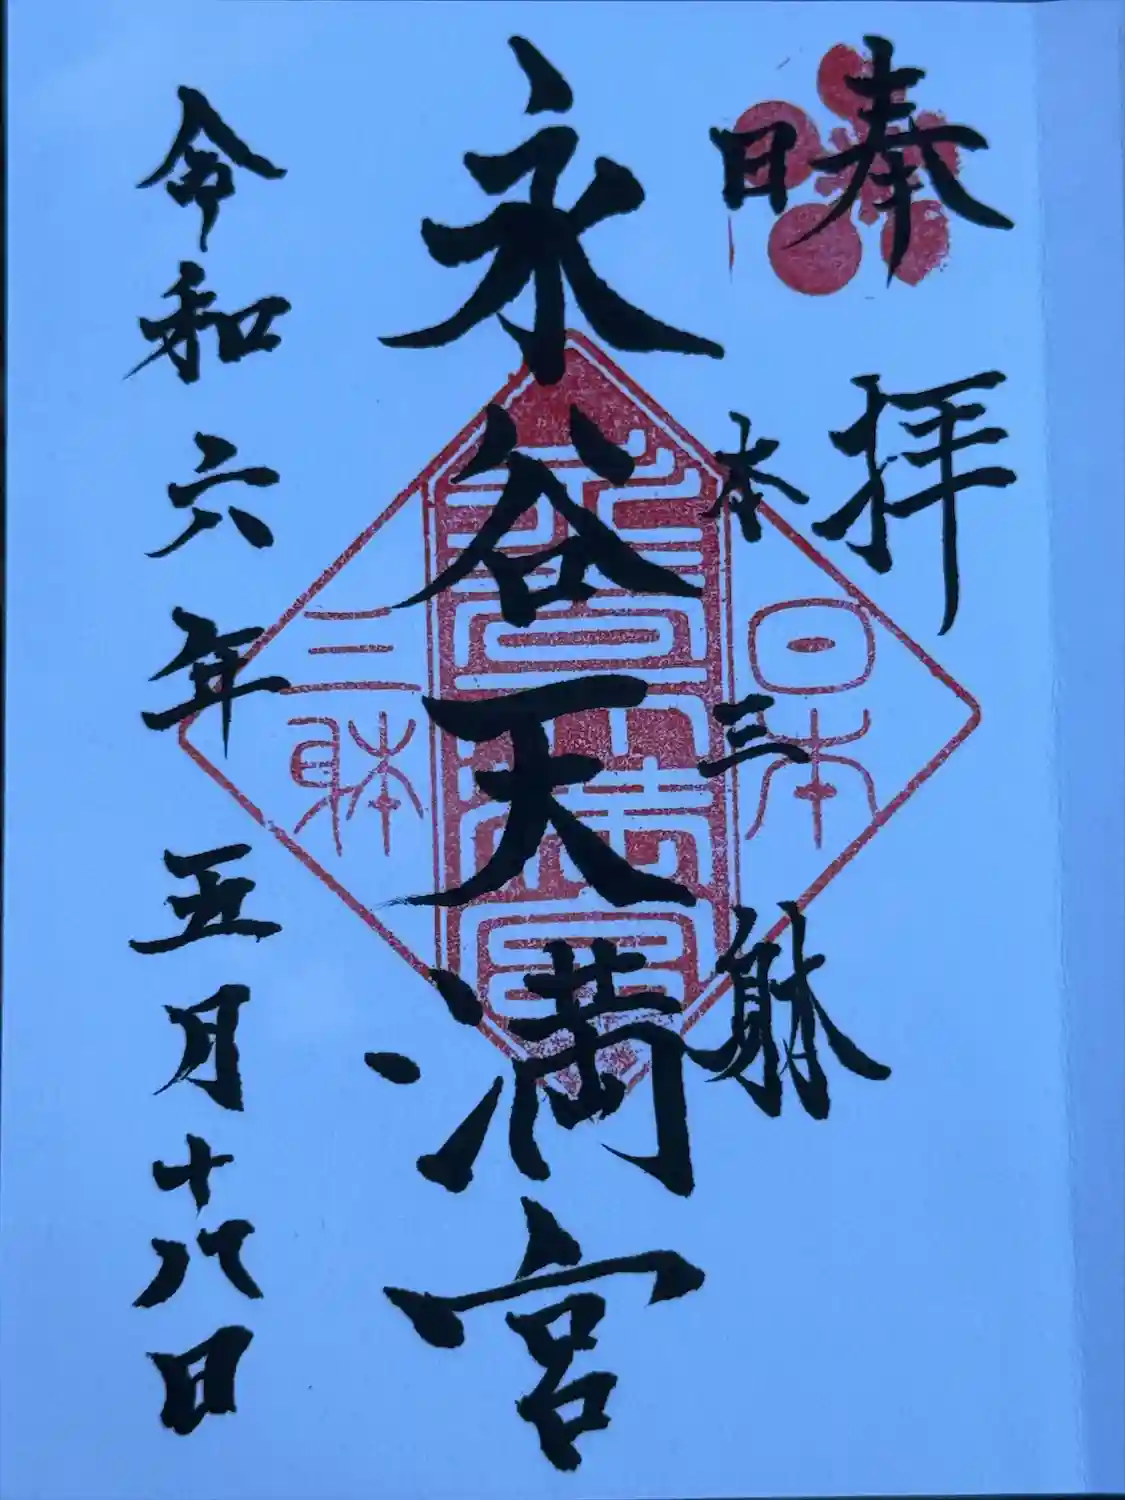 奉拝
日本三躰
永谷天満宮
令和六年五月十八日
日本
永谷天満宮
三躰